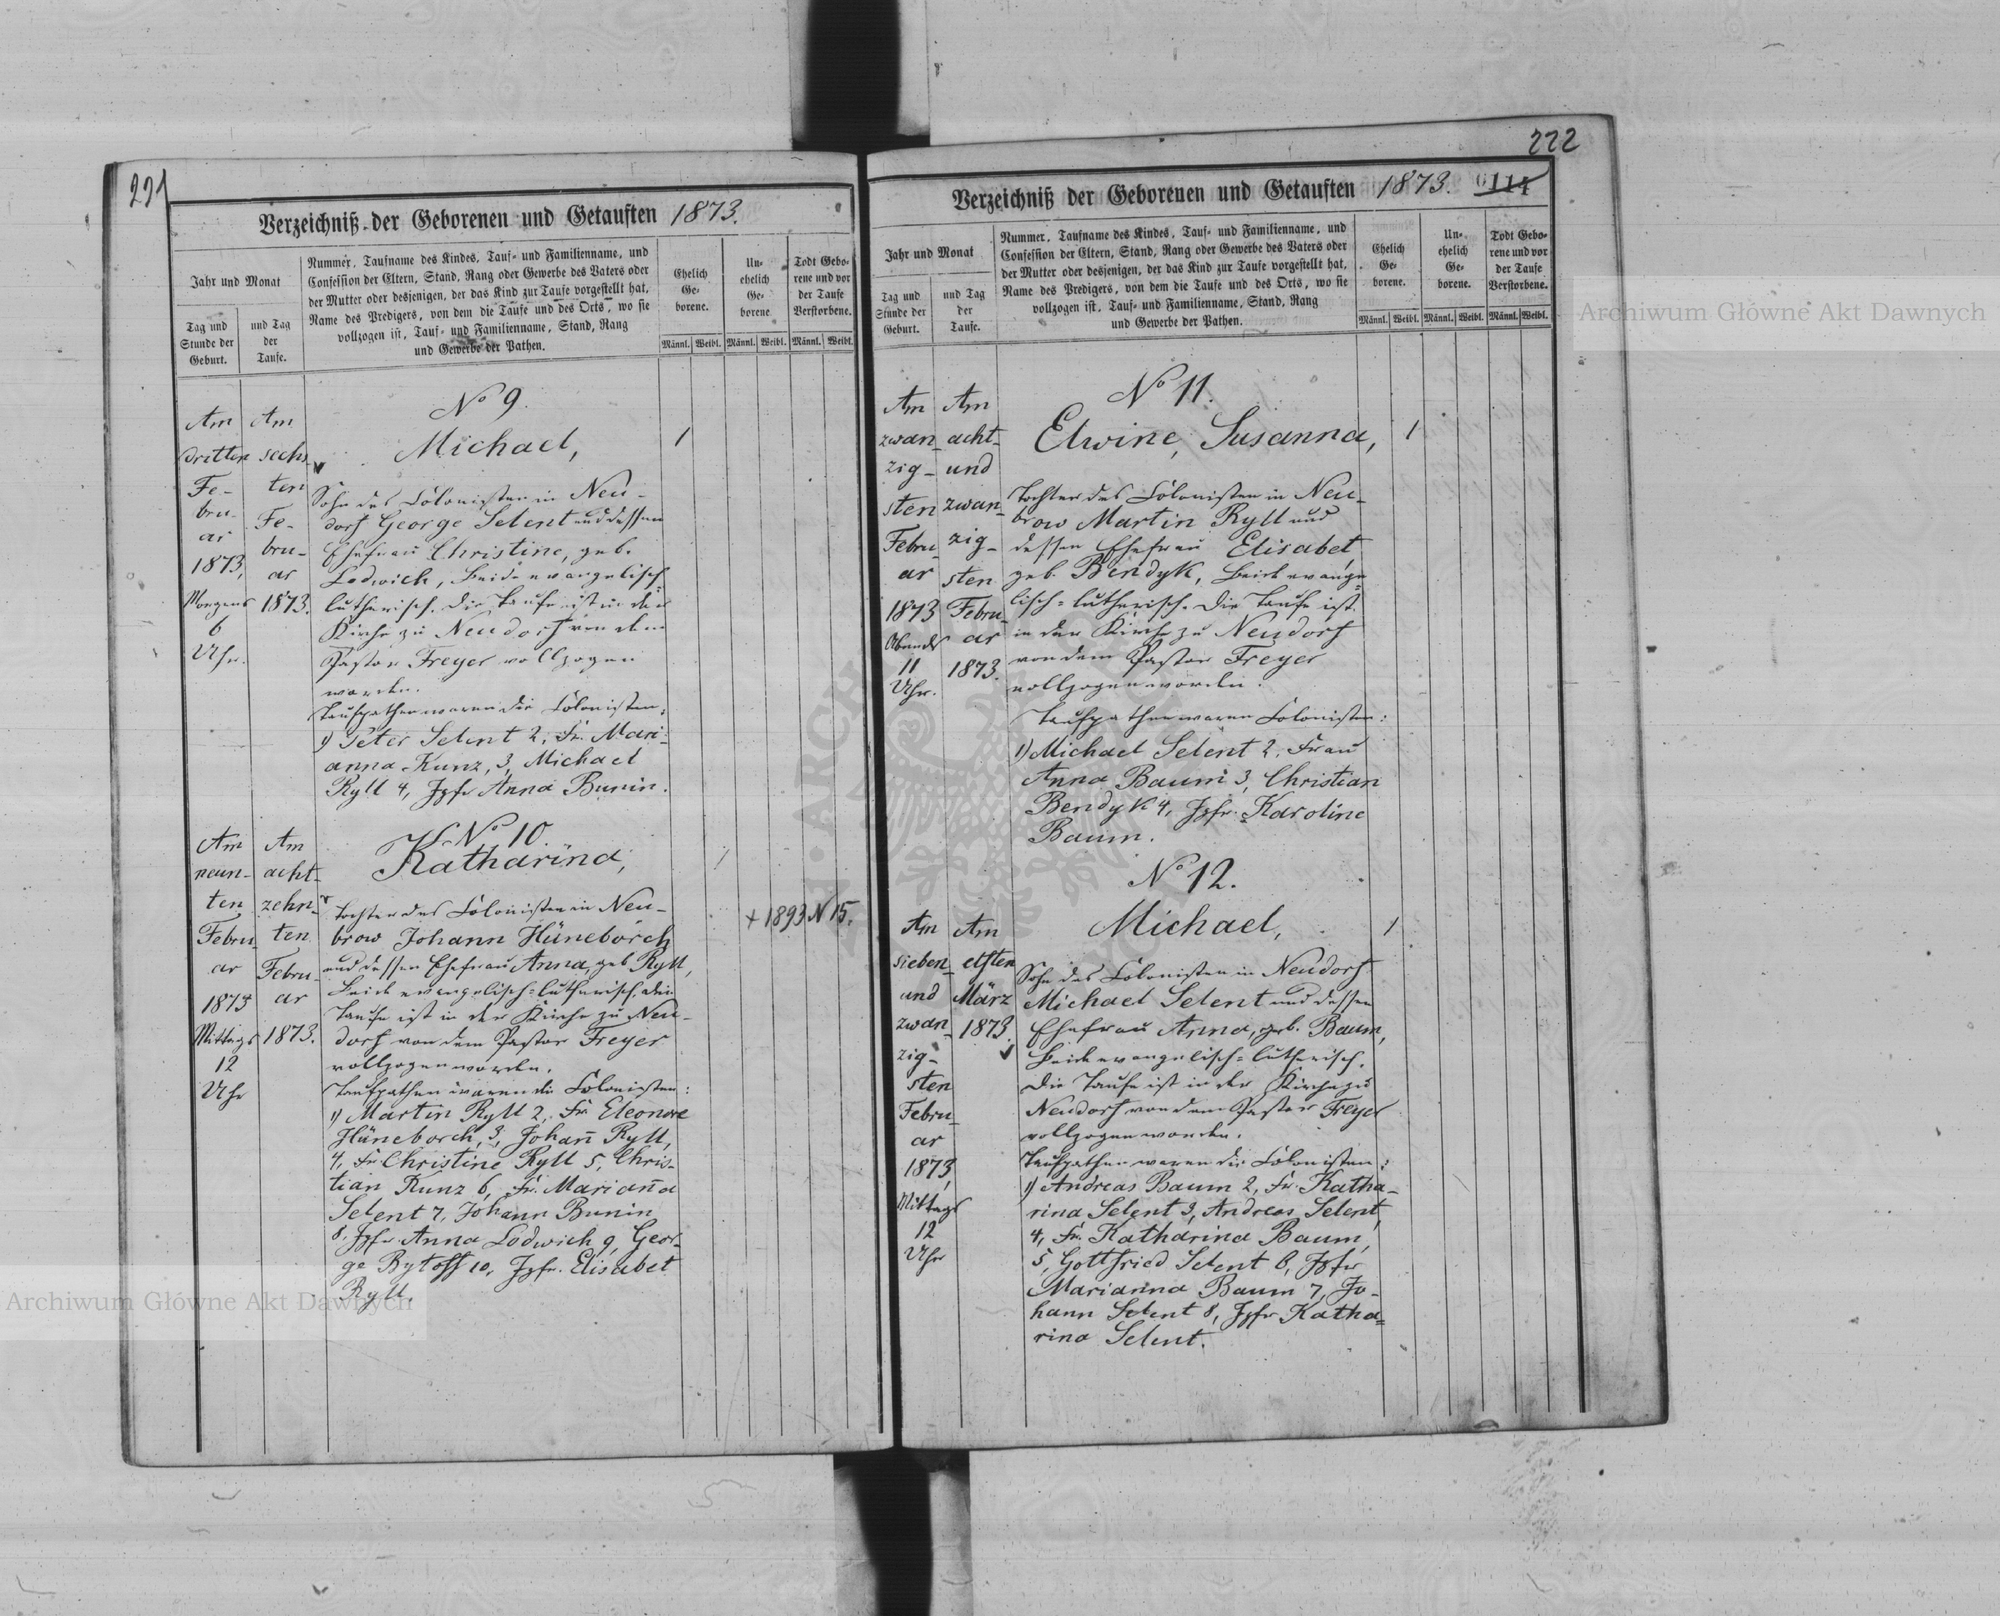 221
Verzeichniß der Geborenen und Getauften 1873.
Jahr und Monat
Tag und
Stunde der
Geburt.
und Tag
der
Taufe.
Nummer, Taufname des Kindes, Tauf- und Familienname, und
Confession der Eltern, Stand, Rang oder Gewerbe des Vaters oder
der Mutter oder desjenigen, der das Kind zur Taufe vorgestellt hat,
Name des Predigers, von dem die Taufe und des Orts, wo sie
vollzogen ist, Tauf- und Familienname, Stand, Rang
und Gewerbe der Pathen.
Ehelich
Ge-
borene.
Un-
ehelich
Ge-
borene
Todt Gebo-
rene und vor
der Taufe
Verstorbene.
Männl. Weibl. Männl. Weibl. Männl. Weibl.
Am
dritten
Fe-
bru-
ar
1873,
Morgens
6
Uhr.
Am
sechs-
ten
Fe-
bru-
ar
1873.
No 9.
Michael,
1
Sohn des Colonisten in Neu-
dorf George Selent und dessen
Ehefrau Christine, geb.
Lodwich, beide evangelisch-
lutherisch. Die Taufe ist in der
Kirche zu Neudorf von dem
Pastor Freyer vollzogen
worden.
Taufpathen waren die Colonisten:
1) Peter Selent 2, Fr. Mari-
anna Kunz, 3, Michael
Ryll 4, Jgfr Anna Bunin.
Am
neun-
ten
Febru-
ar
1873
Mittags
12
Uhr
Am
acht-
zehn-
ten
Febru-
ar
1873.
No 10.
Katharina,
1
+ 1893 N 15.
Tochter des Colonisten in Neu-
brow Johann Hüneborch
und dessen Ehefrau Anna, geb Ryll,
beide evangelisch-lutherisch, die
Taufe ist in der Kirche zu Neu-
dorf von dem Pastor Freyer
vollzogen worden.
Taufpathen waren die Colonisten:
1) Martin Ryll 2, Fr. Eleonore
Hüneborch, 3, Johann Ryll,
4, Fr Christine Ryll 5, Chris-
tian Kunz 6, Fr. Marianna
Selent 7, Johann Bunin
8, Jgfr Anna Lodwich 9, Geor-
ge Rytoff 10, Jgfr. Elisabet
Ryll.
222
Verzeichniß der Geborenen und Getauften 1873. 114
Jahr und Monat
Tag und
Stunde der
Geburt.
und Tag
der
Taufe.
Nummer, Taufname des Kindes, Tauf- und Familienname, und
Confession der Eltern, Stand, Rang oder Gewerbe des Vaters oder
der Mutter oder desjenigen, der das Kind zur Taufe vorgestellt hat,
Name des Predigers, von dem die Taufe und des Orts, wo sie
vollzogen ist, Tauf- und Familienname, Stand, Rang
und Gewerbe der Pathen.
Ehelich
Ge-
borene.
Un-
ehelich
Ge-
borene.
Todt Gebo-
rene und vor
der Taufe
Verstorbene.
Männl. Weibl. Männl. Weibl. Männl. Weibl.
Am
zwan-
zig-
sten
Febru-
ar
1873
Abends
11
Uhr.
Am
acht-
und
zwan-
zig-
sten
Febru-
ar
1873.
No 11.
Elwine, Susanna,
1
Tochter des Colonisten in Neu-
brow Martin Ryll und
dessen Ehefrau Elisabet,
geb. Bendyk, beide evange-
lisch-lutherisch. Die Taufe ist
in der Kirche zu Neudorf
von dem Pastor Freyer
vollzogen worden.
Taufpathen waren Colonisten:
1) Michael Selent 2, Frau
Anna Baum 3, Christian
Bendyk 4, Jgfr. Karoline
Baum.
Am
sieben-
und
zwan-
zig-
sten
Febru-
ar
1873,
Mittags
12
Uhr
Am
elften
März
1873.
No 12.
Michael,
1
Sohn des Colonisten in Neudorf
Michael Selent und dessen
Ehefrau Anna, geb. Baum,
beide evangelisch-lutherisch.
Die Taufe ist in der Kirche zu
Neudorf von dem Pastor Freyer
vollzogen worden.
Taufpathen waren die Colonisten:
1) Andreas Baum 2, Fr. Katha-
rina Selent 3, Andreas Selent,
4, Fr. Katharina Baum,
5, Gottfried Selent 6, Jgfr
Marianna Baum 7, Jo-
hann Selent 8, Jgfr Katha-
rina Selent.
Archiwum Główne Akt Dawnych
Archiwum Główne Akt Dawnych